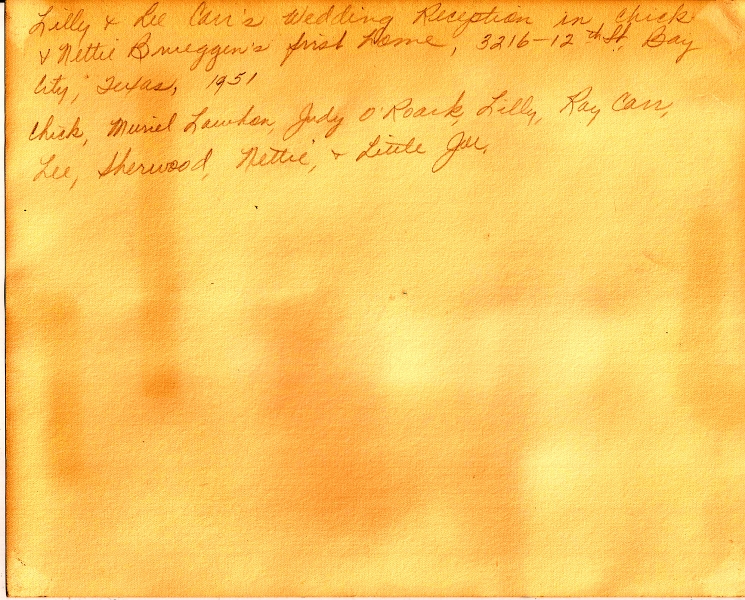 Lilly & Lee Carr's Wedding Reception in Chick
& Nettie Brueggen's first Home, 3216-12th St, Bay
City, Texas, 1951
Chick, Muriel Lawhon, Judy O'Roark, Lilly, Ray Carr,
Lee, Sherwood, Nettie, & Little Joe.